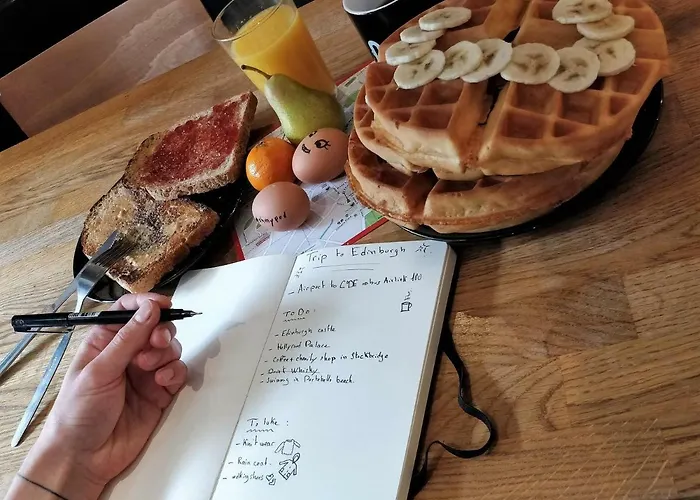 Trip to Edinburgh
- Airport to CODE bus Airlink 100
To Do:
- Edinburgh castle
- Hollyrood Palace
- Coffee + charity shop in Stockbridge
- Drink Whisky
- Swimming in Portobello beach
To take:
- Knit wear
- Rain coat
- walking shoes